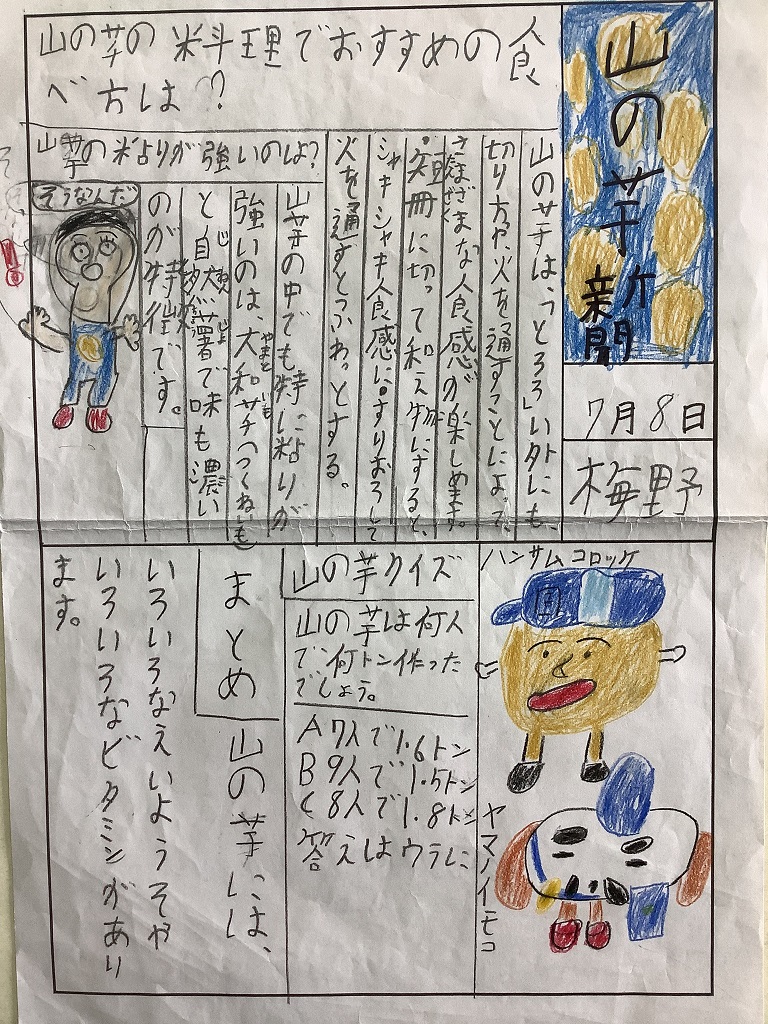 山の芋
新聞
7月8日
梅野
山の芋の料理でおすすめの食
べ方は?
山の芋は、「とろろ」い外にも、
切り方や、火を通すことによって、
さまざまな食感が楽しめます。
・短冊に切って和え物にすると、
シャキシャキ食感に。すりおろして
火を通すとふわっとする。
山芋の粘りが強いのは?
山芋の中でも特に粘りが
強いのは、大和芋(つくねいも)
やまと いも
と自然薯で味も濃い
のが特徴です。
そうなんだ
ハンサムコロッケ
ヤマノイモコ
山の芋クイズ
山の芋は何人
で、何トン作った
でしょう。
A 7人で1.6トン
B 9人で1.5トン
C 8人で1.8トン
答えはウラに
まとめ
山の芋には、
いろいろなえいようそや
いろいろなビタミンがあり
ます。